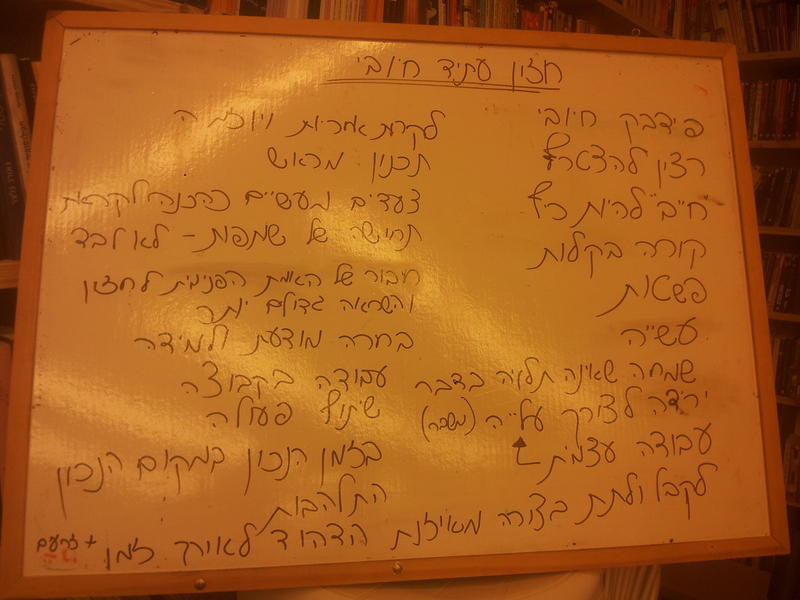 חזון עתיד חיובי
פידבק חיובי
רצון להצטרף
חייב להיות כיף
קורה בקלות
פשטות
עשייה
שמחה שאינה תלויה בדבר
ירידה לצורך עלייה (משבר)
עבודה עצמית
לקבל ולתת בצורה מאוזנת הדהוד לאורך זמן
לקיחת אחריות ויוזמה
תכנון מראש
צעדים מעשיים כהכנה לקראת
תחושה של שותפות - לא לבד
חיבור של האמת הפנימית לחזון
והשראה גדולים יותר
בחרה מודעת ולמידה
עבודה בקבוצה
שיתוף פעולה
בזמן הנכון במקום הנכון
התלהבות
+ זרעים